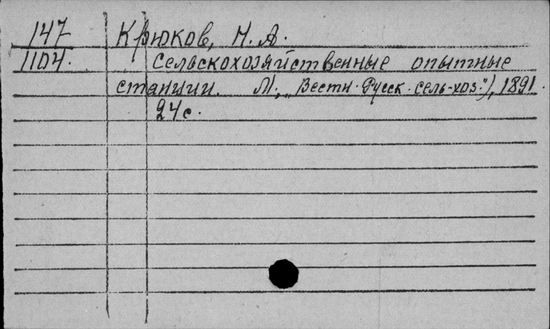 147 Крюков, Н. А.
1104. Сельскохозяйственные опытные
станции. М., „Вестн. Русск. сель-хоз."), 1891.
24 с.